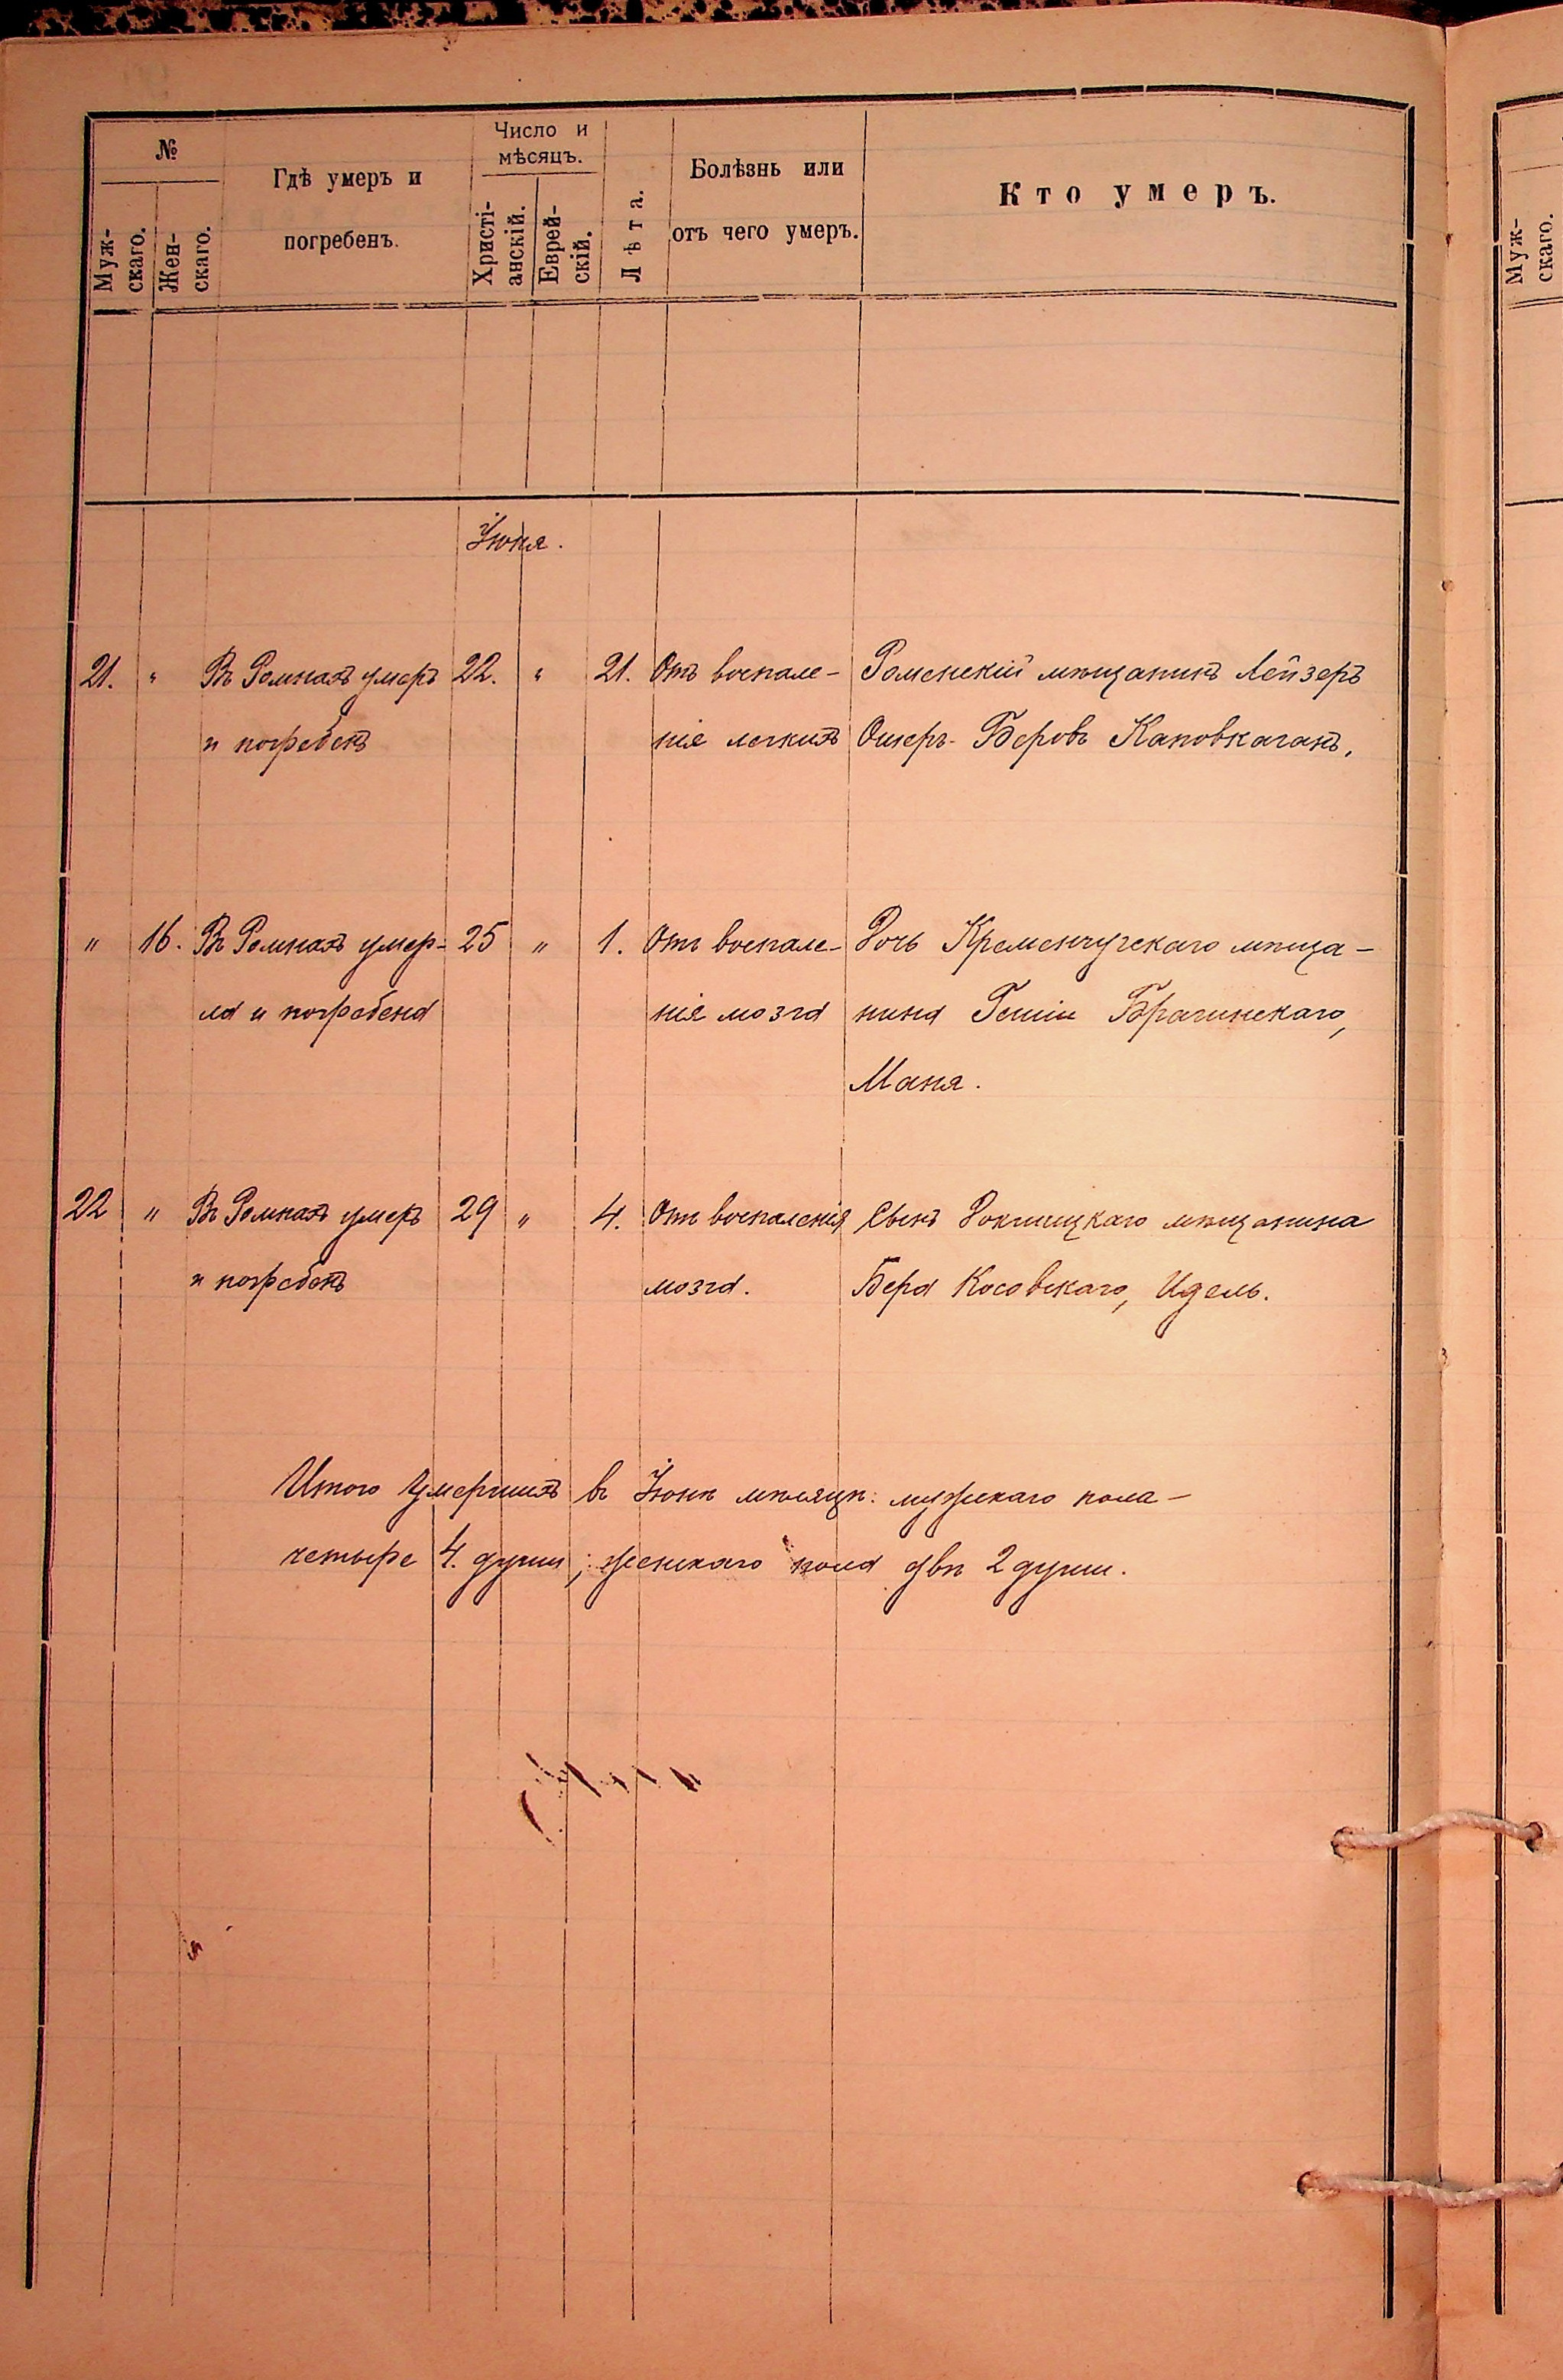 №
Гдѣ умеръ и
погребенъ.
Число и
мѣсяцъ.
Муж-
скаго.
Жен-
скаго.
Христі-
анскій.
Еврей-
скій.
Лѣта.
Болѣзнь или
отъ чего умеръ.
Кто умеръ.
Муж-
скаго.
Іюня.
21. " Въ Ромнахъ умеръ 22. " 21. Отъ воспале- Роменскій мѣщанинъ Лейзеръ
и погребенъ нія легкихъ Ошеръ-Беровъ Кановкаганъ,
" 16. Въ Ромнахъ умер- 25 " 1. Отъ воспале- Дочь Кременчугскаго мѣща-
ла и погребена нія мозга нина Гешіи Брагинскаго,
Маня.
22 " Въ Ромнахъ умеръ 29 " 4. Отъ воспаленія Сынъ Докшицкаго мѣщанина
и погребенъ мозга. Бера Косовскаго, Идель.
Итого умершихъ въ Іюнѣ мѣсяцѣ: мужскаго пола-
четыре 4. души; женскаго пола двѣ 2 души.